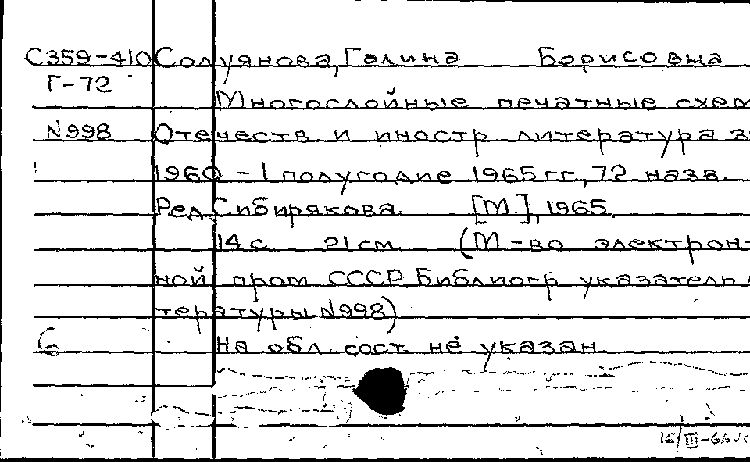 С359-410 Солуянова, Галина Борисовна
Г-72
Многослойные печатные схем
N998 Отечеств и иностр литература за
1960 - I полугодие 1965 гг., 72 назв.
Ред. Сибирякова. [М.], 1965.
14 с. 21 см. (М-во электрон-
ной пром СССР. Библиогр указатель
тературы N998)
На обл. сост. не указан.